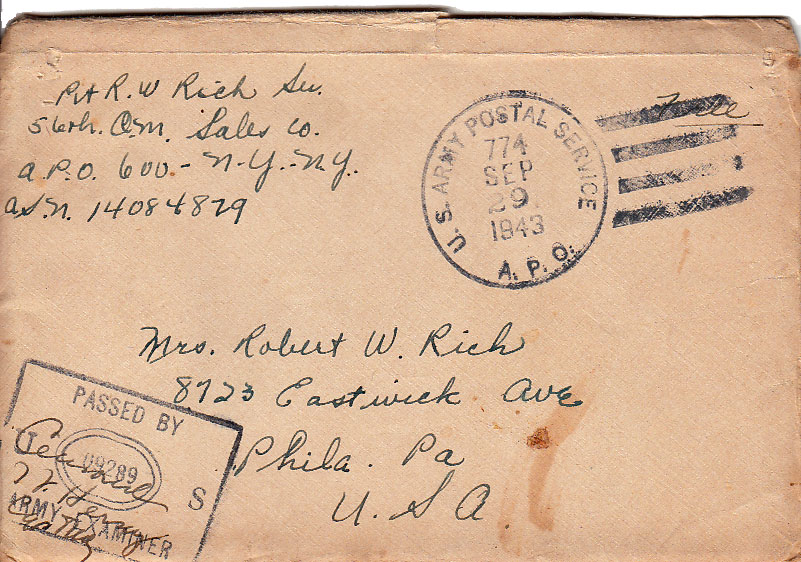 Pvt R. W Rich Su.
56th. Q.M. Sales Co.
A.P.O. 600 - N-Y.-N.Y.
ASN. 14084879
Free
U.S. ARMY POSTAL SERVICE
774
SEP
29
1943
A.P.O.
Mrs. Robert W. Rich
8723 Eastwick Ave
Phila. Pa
U.S.A
PASSED BY
U S
09289
ARMY EXAMINER